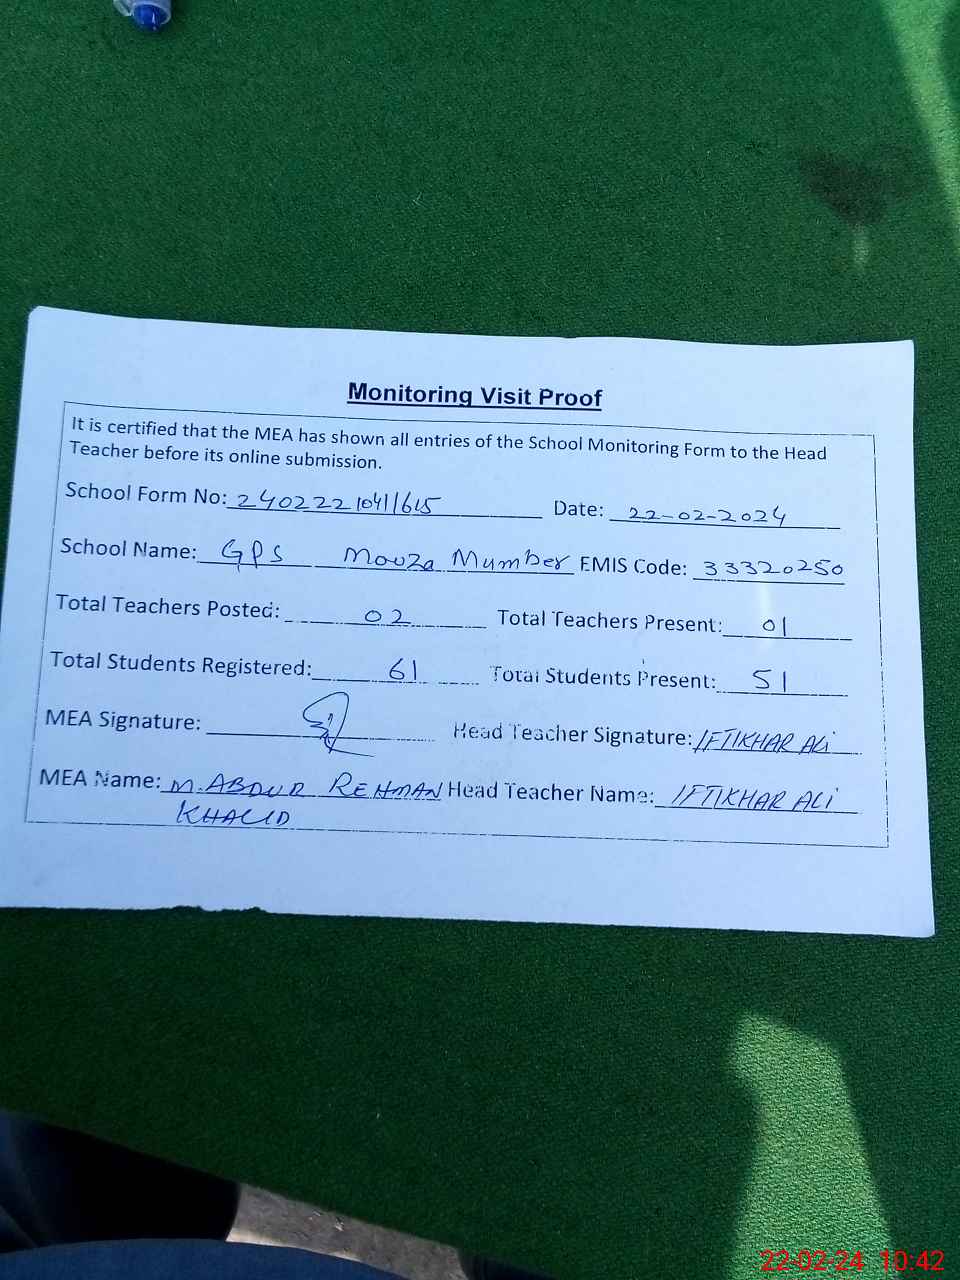 Monitoring Visit Proof
It is certified that the MEA has shown all entries of the School Monitoring Form to the Head
Teacher before its online submission.
School Form No: 24022210411615 Date: 22-02-2024
School Name: GPS Mouza Mumber EMIS Code: 33320250
Total Teachers Posted: 02 Total Teachers Present: 01
Total Students Registered: 61 Total Students Present: 51
MEA Signature: Head Teacher Signature: IFTIKHAR ALi
MEA Name: M. ABDUR REHMAN Head Teacher Name: IFTIKHAR ALi
KHALID
22-02-24 10:42